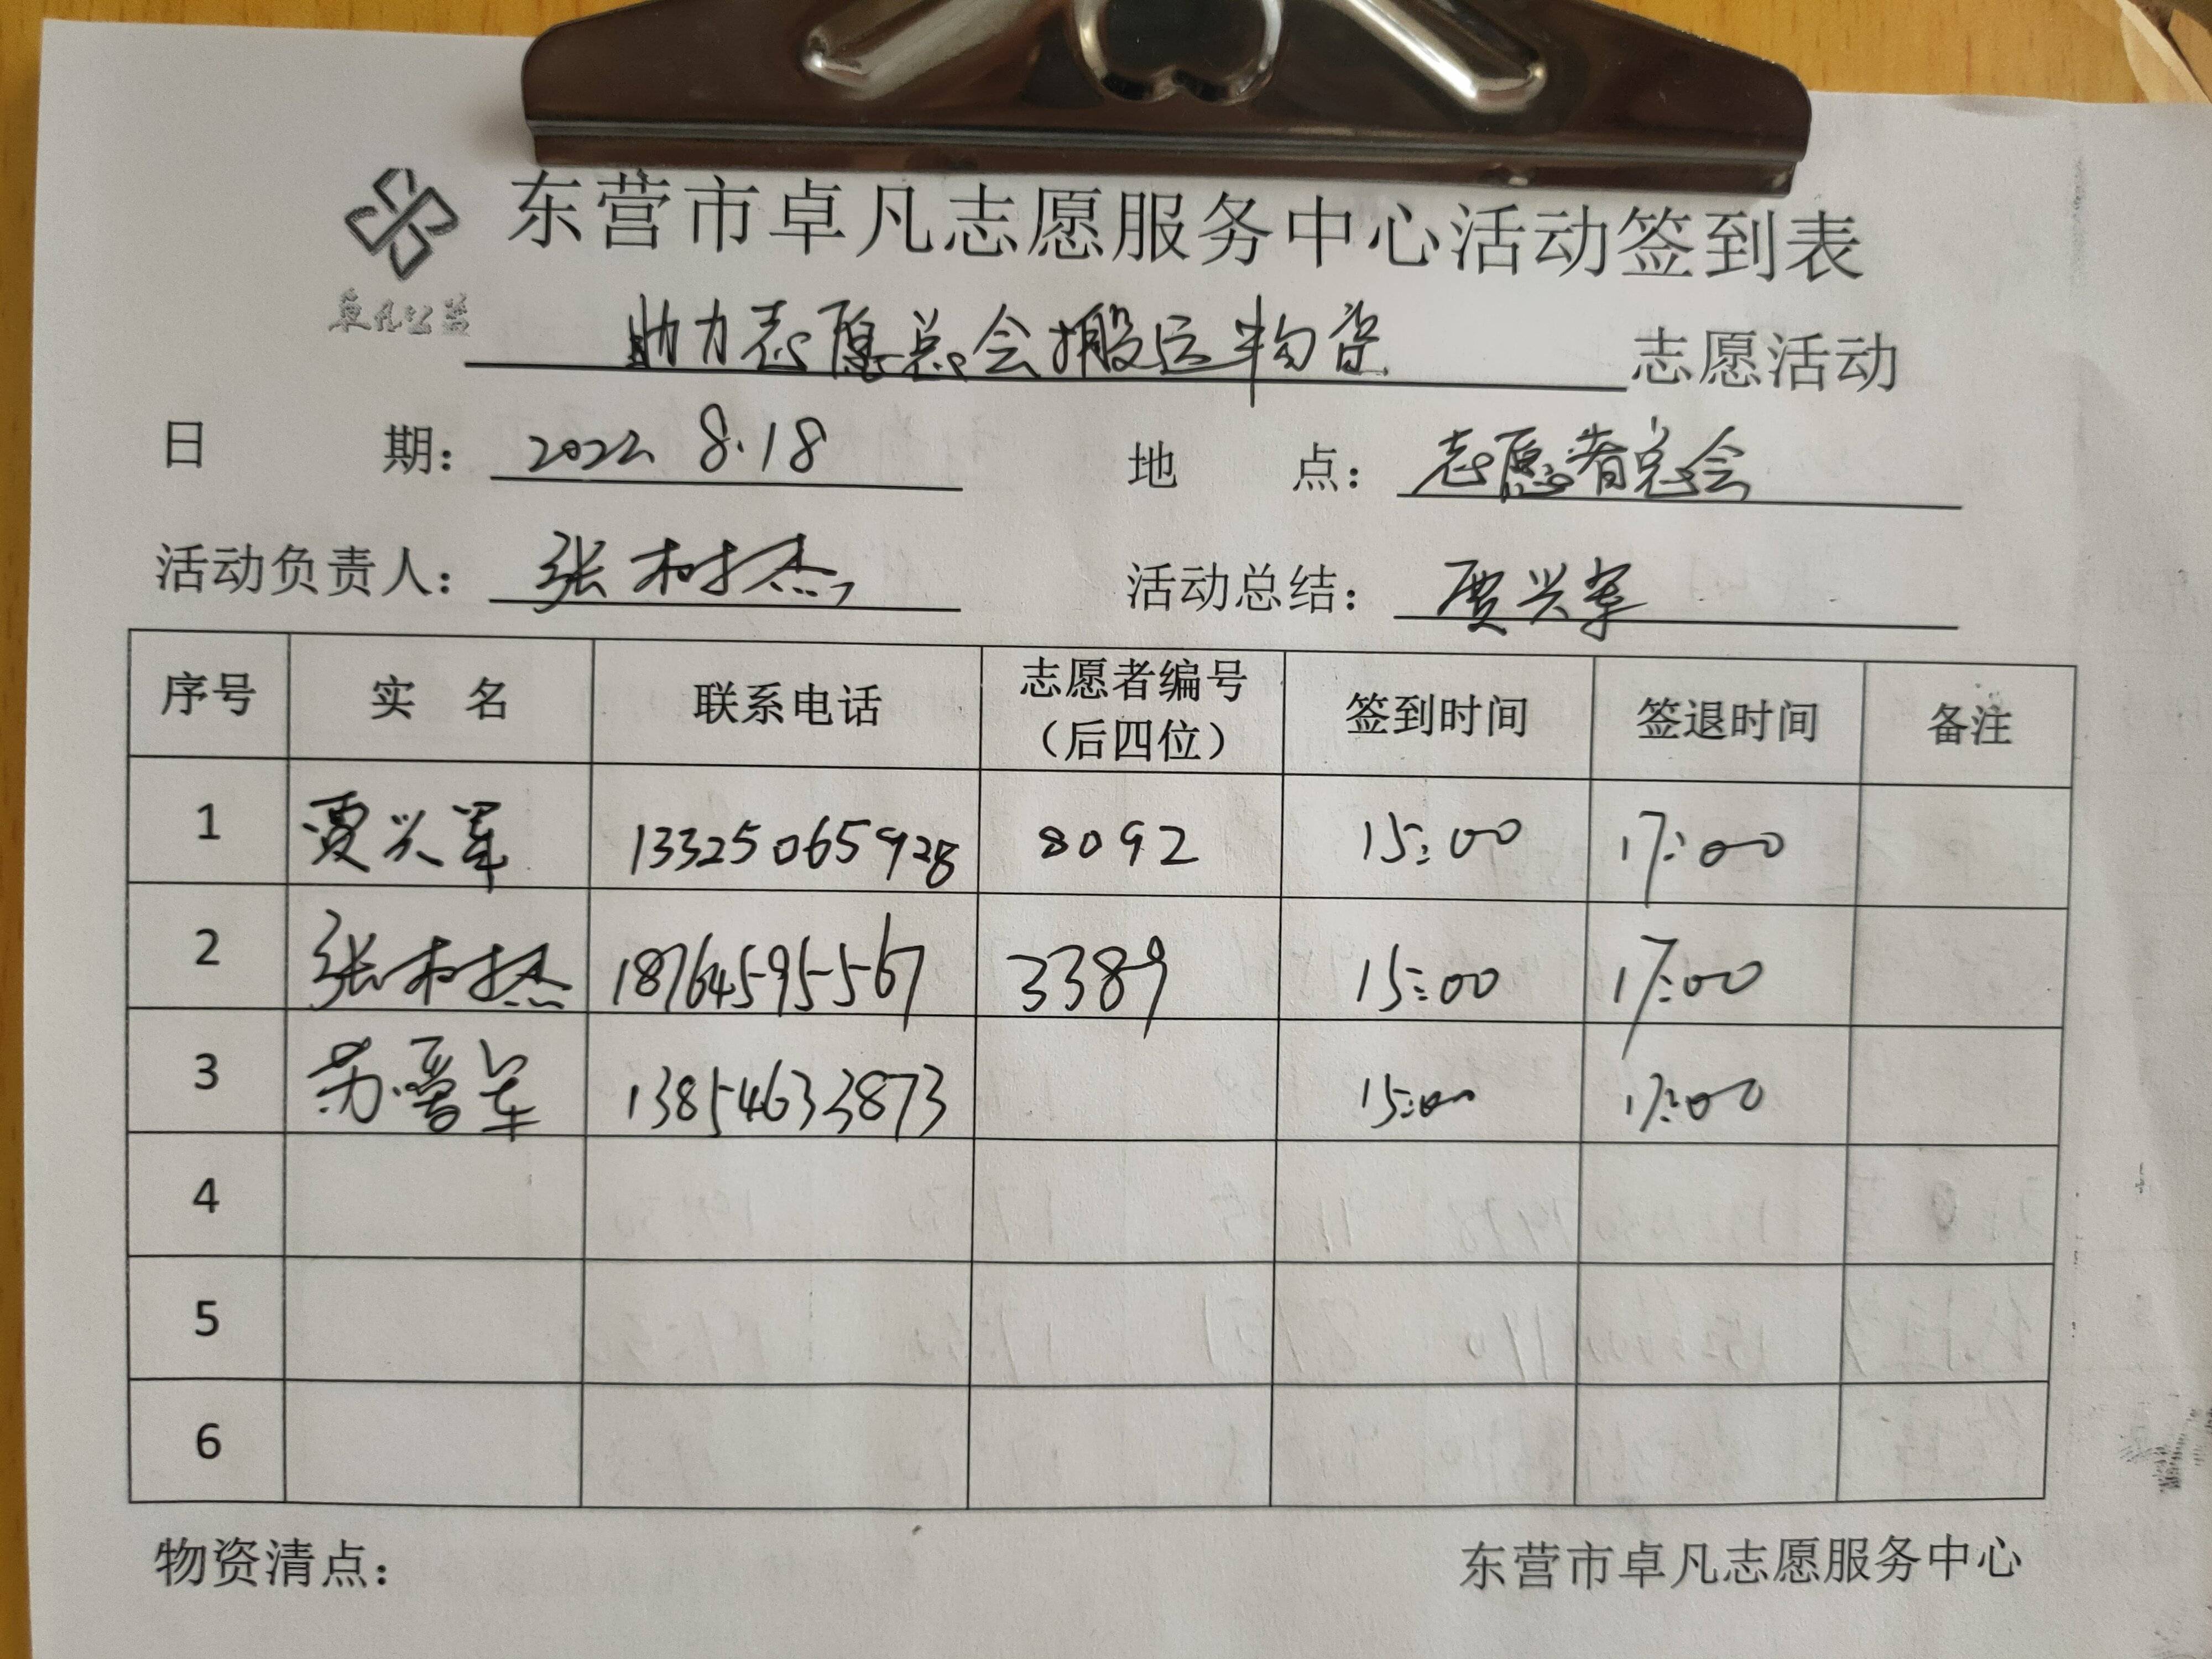 东营市卓凡志愿服务中心活动签到表
卓凡公益
助力志愿总会搬运物资 志愿活动
日 期: 2022 8.18 地 点: 志愿者总会
活动负责人: 张树杰 活动总结: 贾兴军
序号 实 名 联系电话 志愿者编号（后四位） 签到时间 签退时间 备注
1 贾兴军 13325065928 8092 15:00 17:00
2 张树杰 18764595567 3389 15:00 17:00
3 苏 13854633873 15:00 17:00
4
5
6
物资清点: 东营市卓凡志愿服务中心